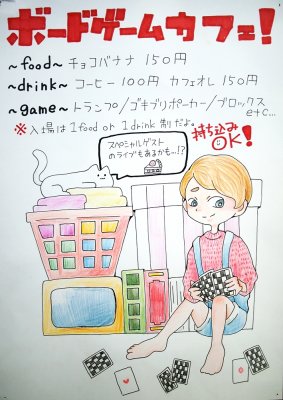 ボードゲームカフェ!
~food~ チョコバナナ 150円
~drink~ コーヒー 100円 カフェオレ 150円
~game~ トランプ/ゴキブリポーカー/ブロックス
etc...
※入場は1food or 1drink 制だよ。
持ち込み
OK!
スペシャルゲスト
のライブもあるかも...!?